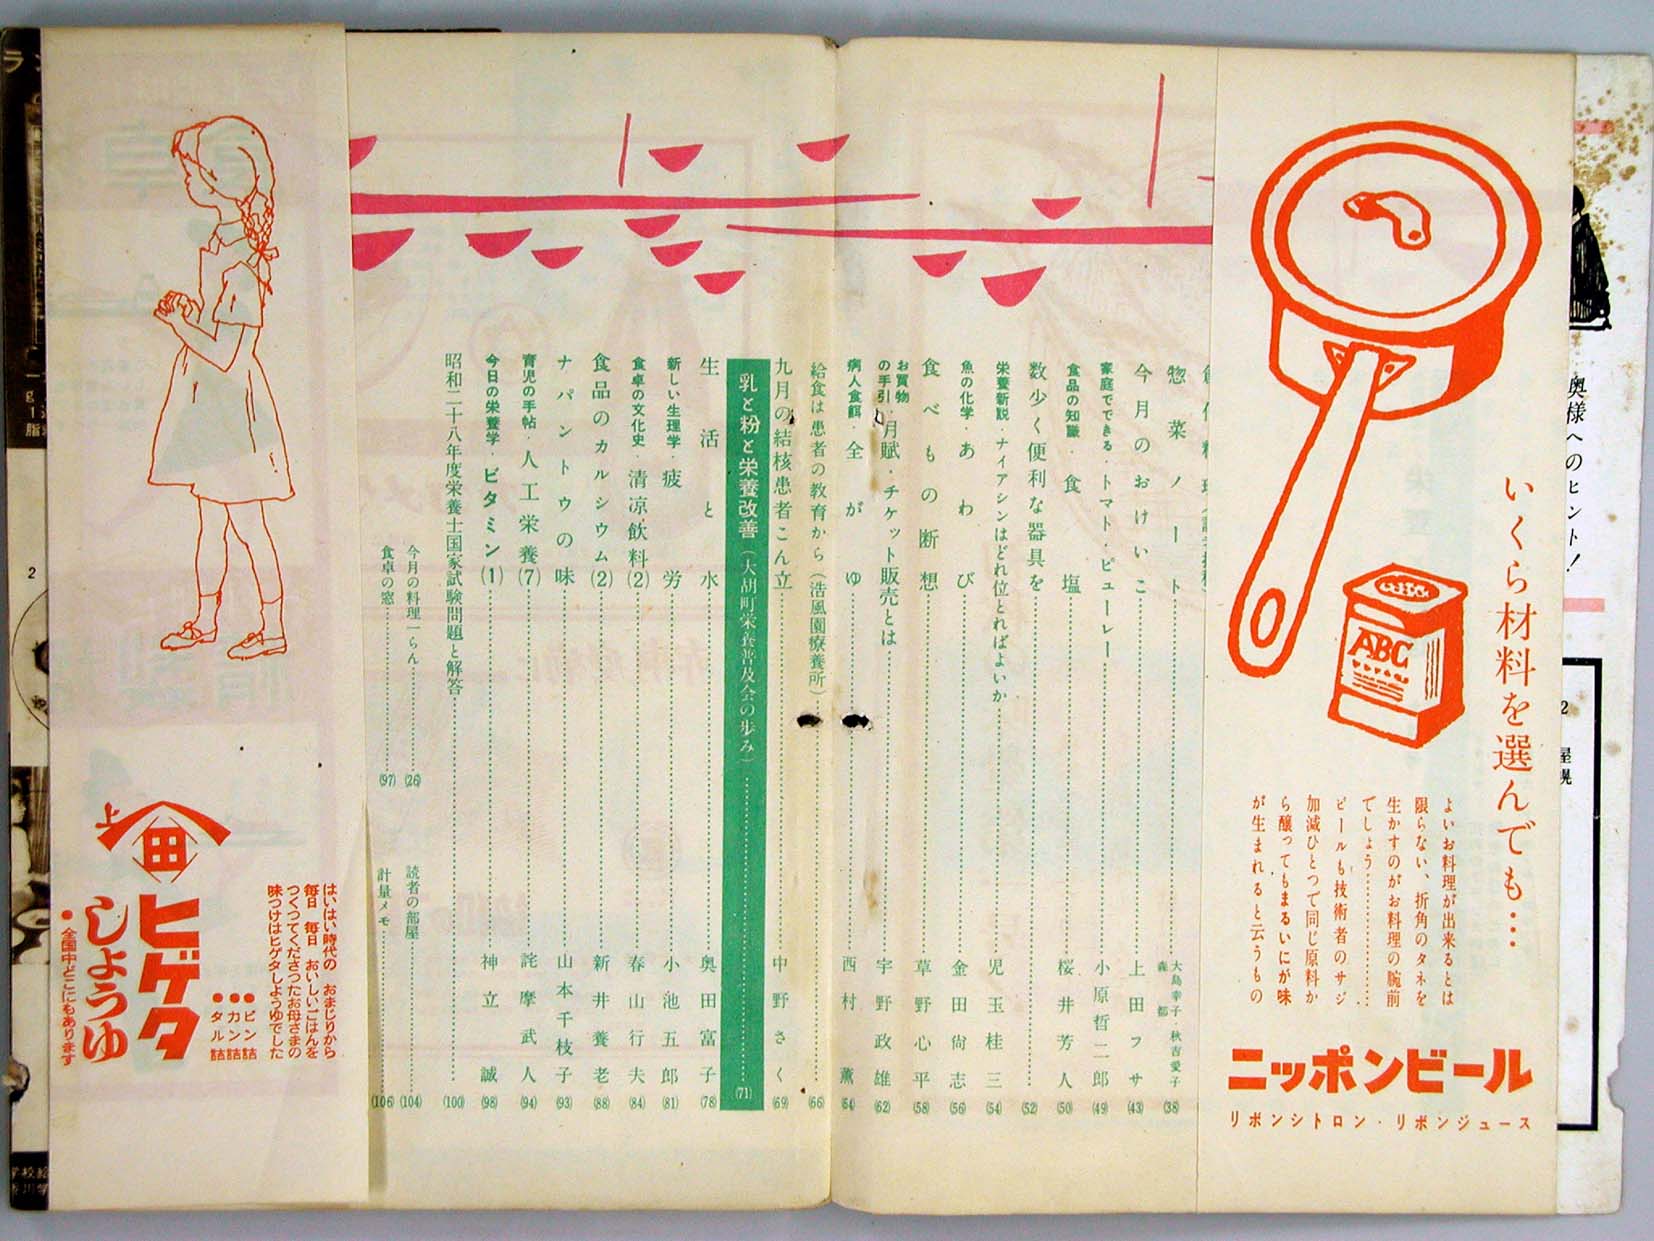 いくら材料を選んでも…
よいお料理が出来るとは
限らない、折角のタネを
生かすのがお料理の腕前
でしょう…………
ビールも技術者のサジ
加減ひとつで同じ原料か
ら醸ってもまるいにが味
が生まれると云うもの
ABC
ニッポンビール
リボンシトロン・リボンジュース
惣菜ノート 大島幸子 秋吉愛子 森都 (38)
今月のおけいこ 上田フサ (43)
家庭でできる・トマト・ピューレー 小原哲二郎 (49)
食品の知識・食塩 桜井芳人 (50)
数少く便利な器具を (52)
栄養新説・ナイアシンはどれ位とればよいか 児玉桂三 (54)
魚の化学・あわび 金田尚志 (56)
食べもの断想 草野心平 (58)
お買物の手引・月賦・チケット販売とは 宇野政雄 (62)
病人食餌・全がゆ 西村薫 (64)
給食は患者の教育から(浩風園療養所) (66)
九月の結核患者こん立 中野さく (69)
乳と粉と栄養改善(大胡町栄養普及会の歩み) (71)
生活と水 奥田富子 (78)
新しい生理学・疲労 小池五郎 (81)
食卓の文化史・清涼飲料(2) 春山行夫 (84)
食品のカルシウム(2) 新井養老 (88)
ナパントウの味 山本千枝子 (93)
育児の手帖・人工栄養(7) 詫摩武人 (94)
今日の栄養学・ビタミン(1) 神立誠 (98)
昭和二十八年度栄養士国家試験問題と解答 (100)
今月の料理一らん (26)
読者の部屋 (104)
食卓の窓 (97)
計量メモ (106)
はいはい時代の おまじりから
毎日 毎日 おいしいごはんを
つくつてくださつたお母さまの
味つけはヒゲタしようゆでした
ビン詰
カン詰
タル詰
上
田
ヒゲタ
しようゆ
・全国中どこにもあります
奥様へのヒント!